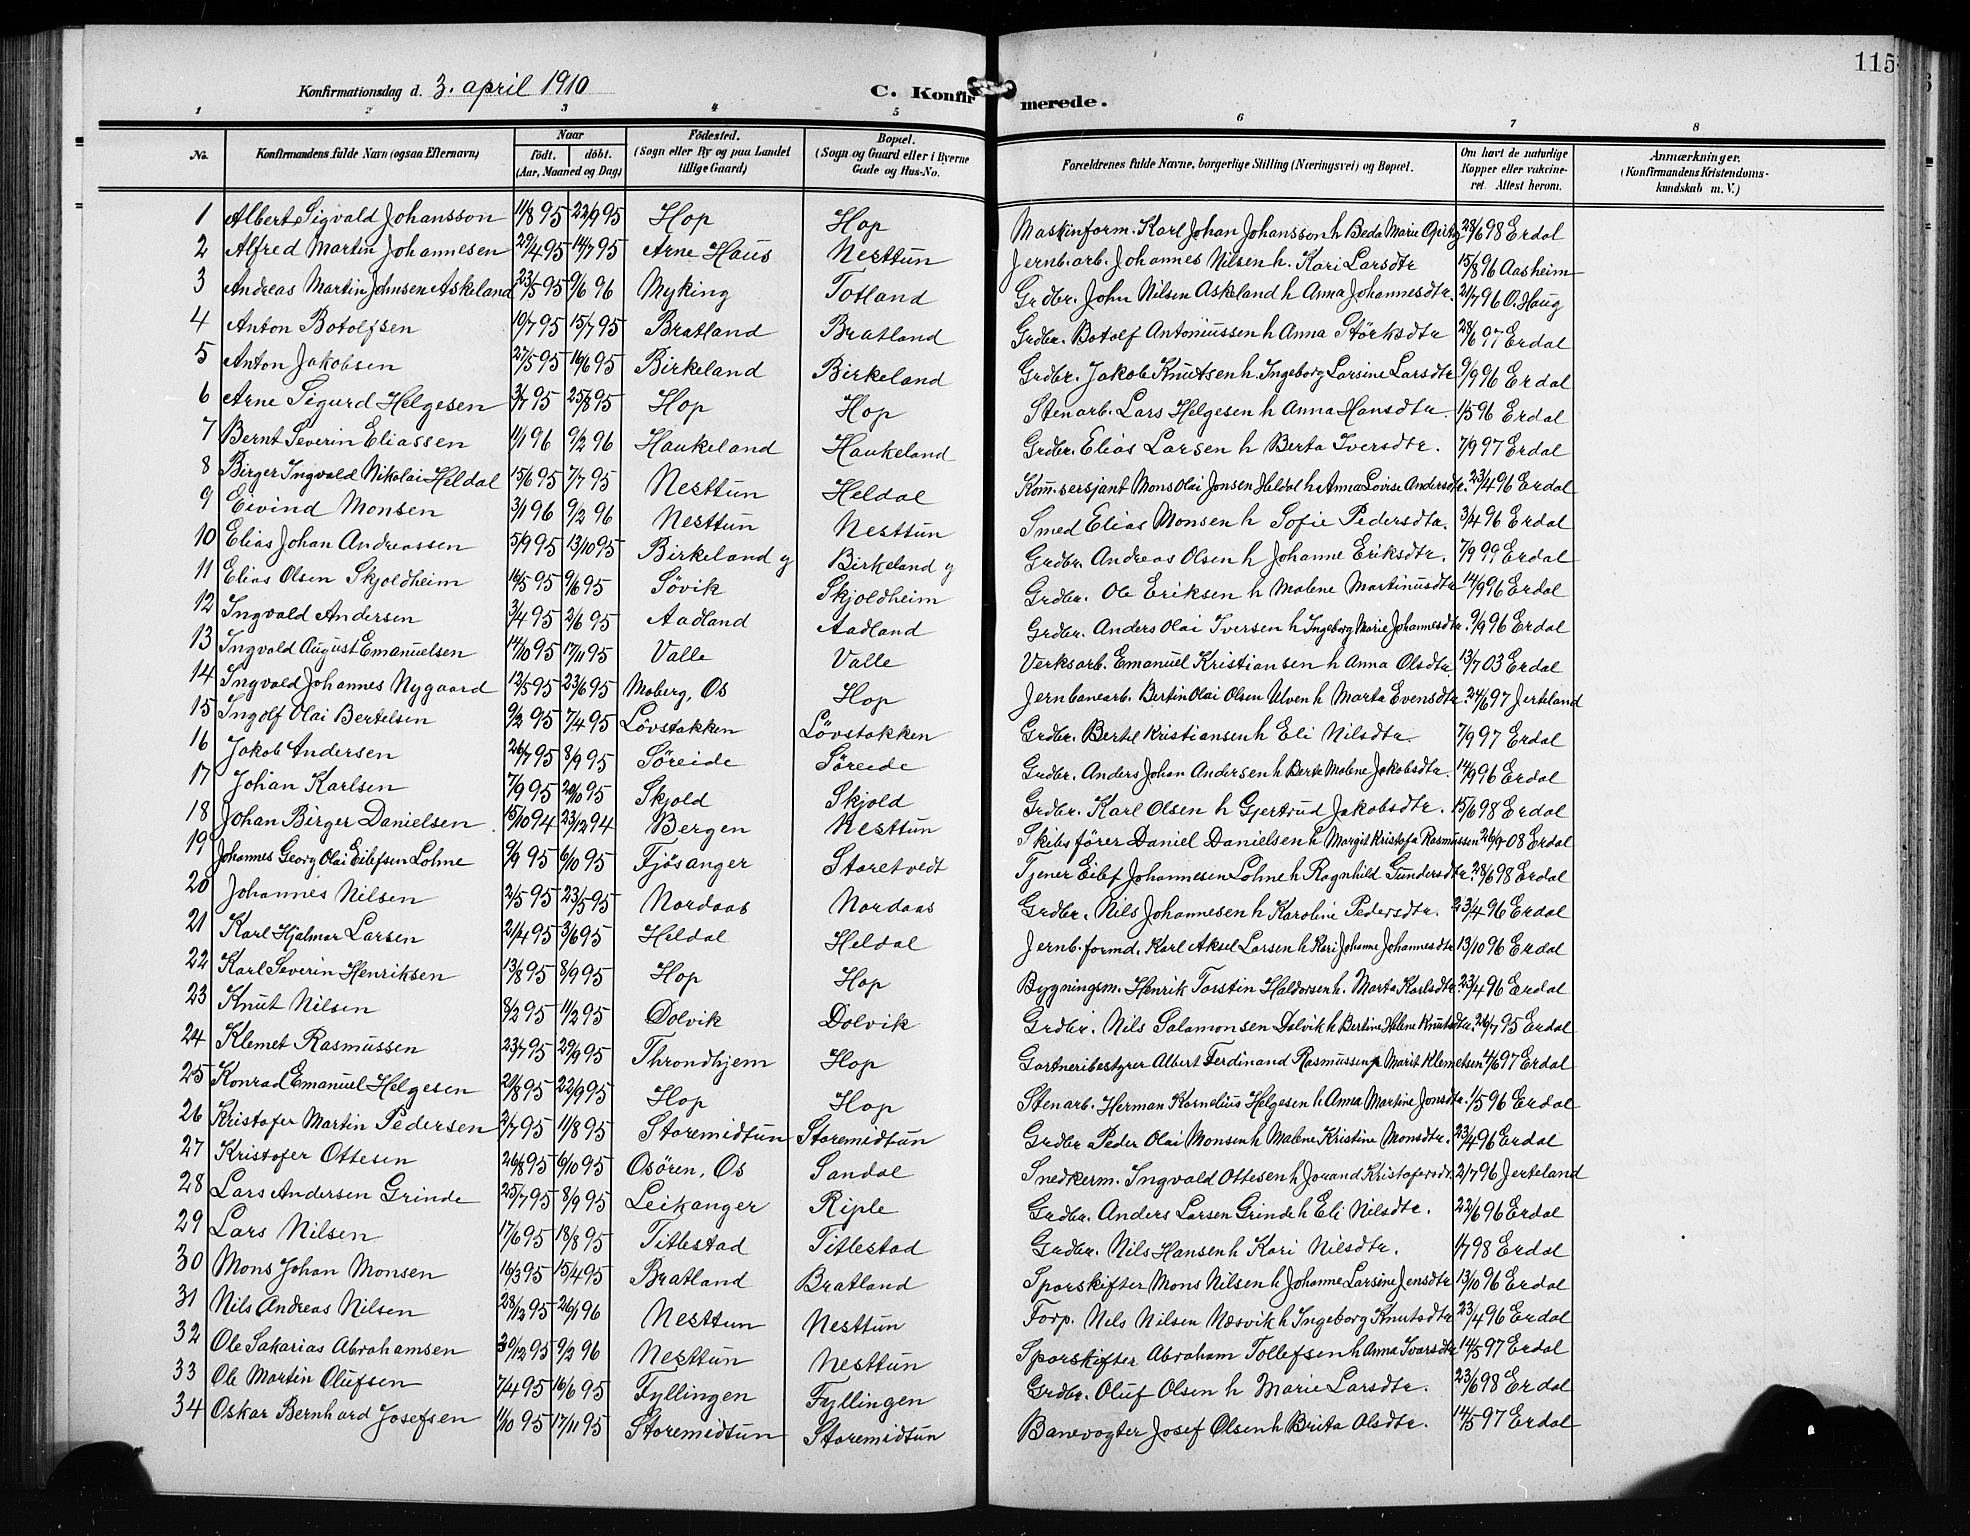 115
Konfirmationsdag d. 3. april 1910
C. Konfirmerede.
1 2 3 4 5 6 7 8
No. Konfirmandens fulde Navn (ogsaa Efternavn) Naar født. døbt. (Aar, Maaned og Dag) Fødested. (Sogn eller By og paa Landet tillige Gaard) Bopæl. (Sogn og Gaard eller i Byerne Gade og Hus-No. Forældrenes fulde Navne, borgerlige Stilling (Næringsvei) og Bopæl. Om havt de naturlige Kopper eller vakcineret. Attest herom. Anmærkninger. (Konfirmandens Kristendomskundskab m. V.)
1 Albert Sigvald Johansson 11/8 95 22/9 95 Hop Hop Maskinform. Karl Johan Johansson h Beda Marie 28/6 98 Erdal
2 Alfred Martin Johannesen 29/4 95 14/7 95 Arne Haus Nesttun Jernb.arb. Johannes Nilsen h. Kari Larsdtr 15/8 96 Aasheim
3 Andreas Martin Johnsen Askeland 23/5 95 9/6 96 Myking Totland Grdbr. John Nilsen Askeland h Anna Johannesdtr. 21/7 96 O. Haug
4 Anton Botolfsen 10/7 95 15/7 95 Bratland Bratland Grdbr. Botolf Antoniussen h Anna Störksdtr 28/6 97 Erdal
5 Anton Jakobsen 27/5 95 16/6 95 Birkeland Birkeland Grdbr. Jakob Knutsen h. Ingeborg Larsine Larsdtr 9/9 96 Erdal
6 Arne Sigurd Helgesen 3/7 95 25/8 95 Hop Hop Stenarb. Lars Helgesen h Anna Hansdtr. 1/5 96 Erdal
7 Bernt Severin Eliassen 11/1 96 9/2 96 Haukeland Haukeland Grdbr. Elias Larsen h Berta Iversdtr. 7/9 97 Erdal
8 Birger Ingvald Nikolai Heldal 15/6 95 7/7 95 Nesttun Heldal Kom.sersjant Mons Olai Jonsen Heldal h Anna Lovise Andersdtr. 23/4 96 Erdal
9 Eivind Monsen 3/1 96 9/2 96 Nesttun Nesttun Smed Elias Monsen h Sofie Pedersdtr. 3/4 96 Erdal
10 Elias Johan Andreassen 5/9 95 13/10 95 Birkeland y Birkeland y Grdbr. Andreas Olsen h Johanne Eriksdtr. 7/9 99 Erdal
11 Elias Olsen Skjoldheim 16/5 95 9/6 95 Sövik Skjoldheim Grdbr. Ole Eriksen h Malene Martinusdtr 14/9 96 Erdal
12 Ingvald Andersen 3/4 95 2/6 95 Aadland Aadland Grdbr. Anders Olai Iversen h Ingeborg Marie Johannesdtr. 9/9 96 Erdal
13 Ingvald August Emanuelsen 14/10 95 17/11 95 Valle Valle Verksarb. Emanuel Kristiansen h Anna Olsdtr. 13/7 03 Erdal
14 Ingvald Johannes Nygaard 12/5 95 23/6 95 Moberg, Os Hop Jernbanearb. Bertin Olai Olsen Ulven h Marta Evensdtr. 24/6 97 Jerteland
15 Ingolf Olai Bertelsen 9/2 95 7/4 95 Lövstakken Lövstakken Grdbr. Bertel Kristiansen h Eli Nilsdtr. 7/9 97 Erdal
16 Jakob Andersen 26/7 95 8/9 95 Söreide Söreide Grdbr. Anders Johan Andersen h Berte Malene Jakobsdtr. 14/9 96 Erdal
17 Johan Karlsen 7/9 95 20/10 95 Skjold Skjold Grdbr. Karl Olsen h Gjertrud Jakobsdtr. 15/6 98 Erdal
18 Johan Birger Danielsen 15/10 94 23/12 94 Bergen Nesttun Skibsförer Daniel Danielsen h Margit Kristofa Rasmussen 26/9 08 Erdal
19 Johannes Georg Olai Eilefsen Lohne 9/9 95 6/10 95 Fjösanger Storetvedt Tjener Eilef Johannesen Lohne h Ragnhild Gundersdtr. 28/6 98 Erdal
20 Johannes Nilsen 2/5 95 23/5 95 Nordaas Nordaas Grdbr. Nils Johannesen h Karoline Pedersdtr. 23/4 96 Erdal
21 Karl Hjalmar Larsen 21/4 95 3/6 95 Heldal Heldal Jernb.formd. Karl Aksel Larsen h Kari Johanne Johannesdtr 13/10 96 Erdal
22 Karl Severin Henriksen 13/8 95 8/9 95 Hop Hop Bygningsm. Henrik Torstin Haldorsen h. Marta Karlsdtr. 23/4 96 Erdal
23 Knut Nilsen 8/2 95 11/2 95 Dolvik Dolvik Grdbr. Nils Salamonsen Dolvik h Bertine Helene Knutsdtr. 26/7 95 Erdal
24 Klemet Rasmussen 23/7 95 29/9 95 Throndhjem Hop Gartneribestyrer Albert Ferdinand Rasmussen h Marit Klemetsen 4/6 97 Erdal
25 Konrad Emanuel Helgesen 20/8 95 22/9 95 Hop Hop Stenarb. Herman Kornelius Helgesen h Anna Martine Jonsdtr. 1/5 96 Erdal
26 Kristofer Martin Pedersen 2/7 95 11/8 95 Storemidtun Storemidtun Grdbr Peder Olai Monsen h Malene Kristine Monsdtr. 23/4 96 Erdal
27 Kristofer Ottesen 26/8 95 6/10 95 Osören, Os Sandal Snedkerm. Ingvald Ottesen h Jovand Kristofersdt. 21/7 96 Jerteland
28 Lars Andersen Grinde 25/7 95 8/9 95 Leikanger Riple Grdbr. Anders Larsen Grinde h Eli Nilsdtr. 22/6 96 Erdal
29 Lars Nilsen 17/6 95 18/8 95 Titlestad Titlestad Grdbr. Nils Hansen h Kari Nilsdtr. 1/7 98 Erdal
30 Mons Johan Monsen 16/3 95 15/4 95 Bratland Bratland Sporskifter Mons Nilsen h Johanne Larsine Jensdtr 13/10 96 Erdal
31 Nils Andreas Nilsen 28/12 95 26/1 96 Nesttun Nesttun Forp. Nils Nilsen Næsvik h Ingeborg Knutsdtr 23/4 96 Erdal
32 Ole Sakarias Abrahamsen 30/12 95 9/2 96 Nesttun Nesttun Sporskifter Abraham Tollefsen h Anna Ivarsdtr 14/5 97 Erdal
33 Ole Martin Olufsen 7/4 95 16/6 95 Fyllingen Fyllingen Grdbr. Oluf Olsen h Marie Larsdtr. 23/6 98 Erdal
34 Oskar Bernhard Josefsen 11/10 95 17/11 95 Storemidtun Storemidtun Banevogter Josef Olsen h Brita Olsdtr. 14/5 97 Erdal